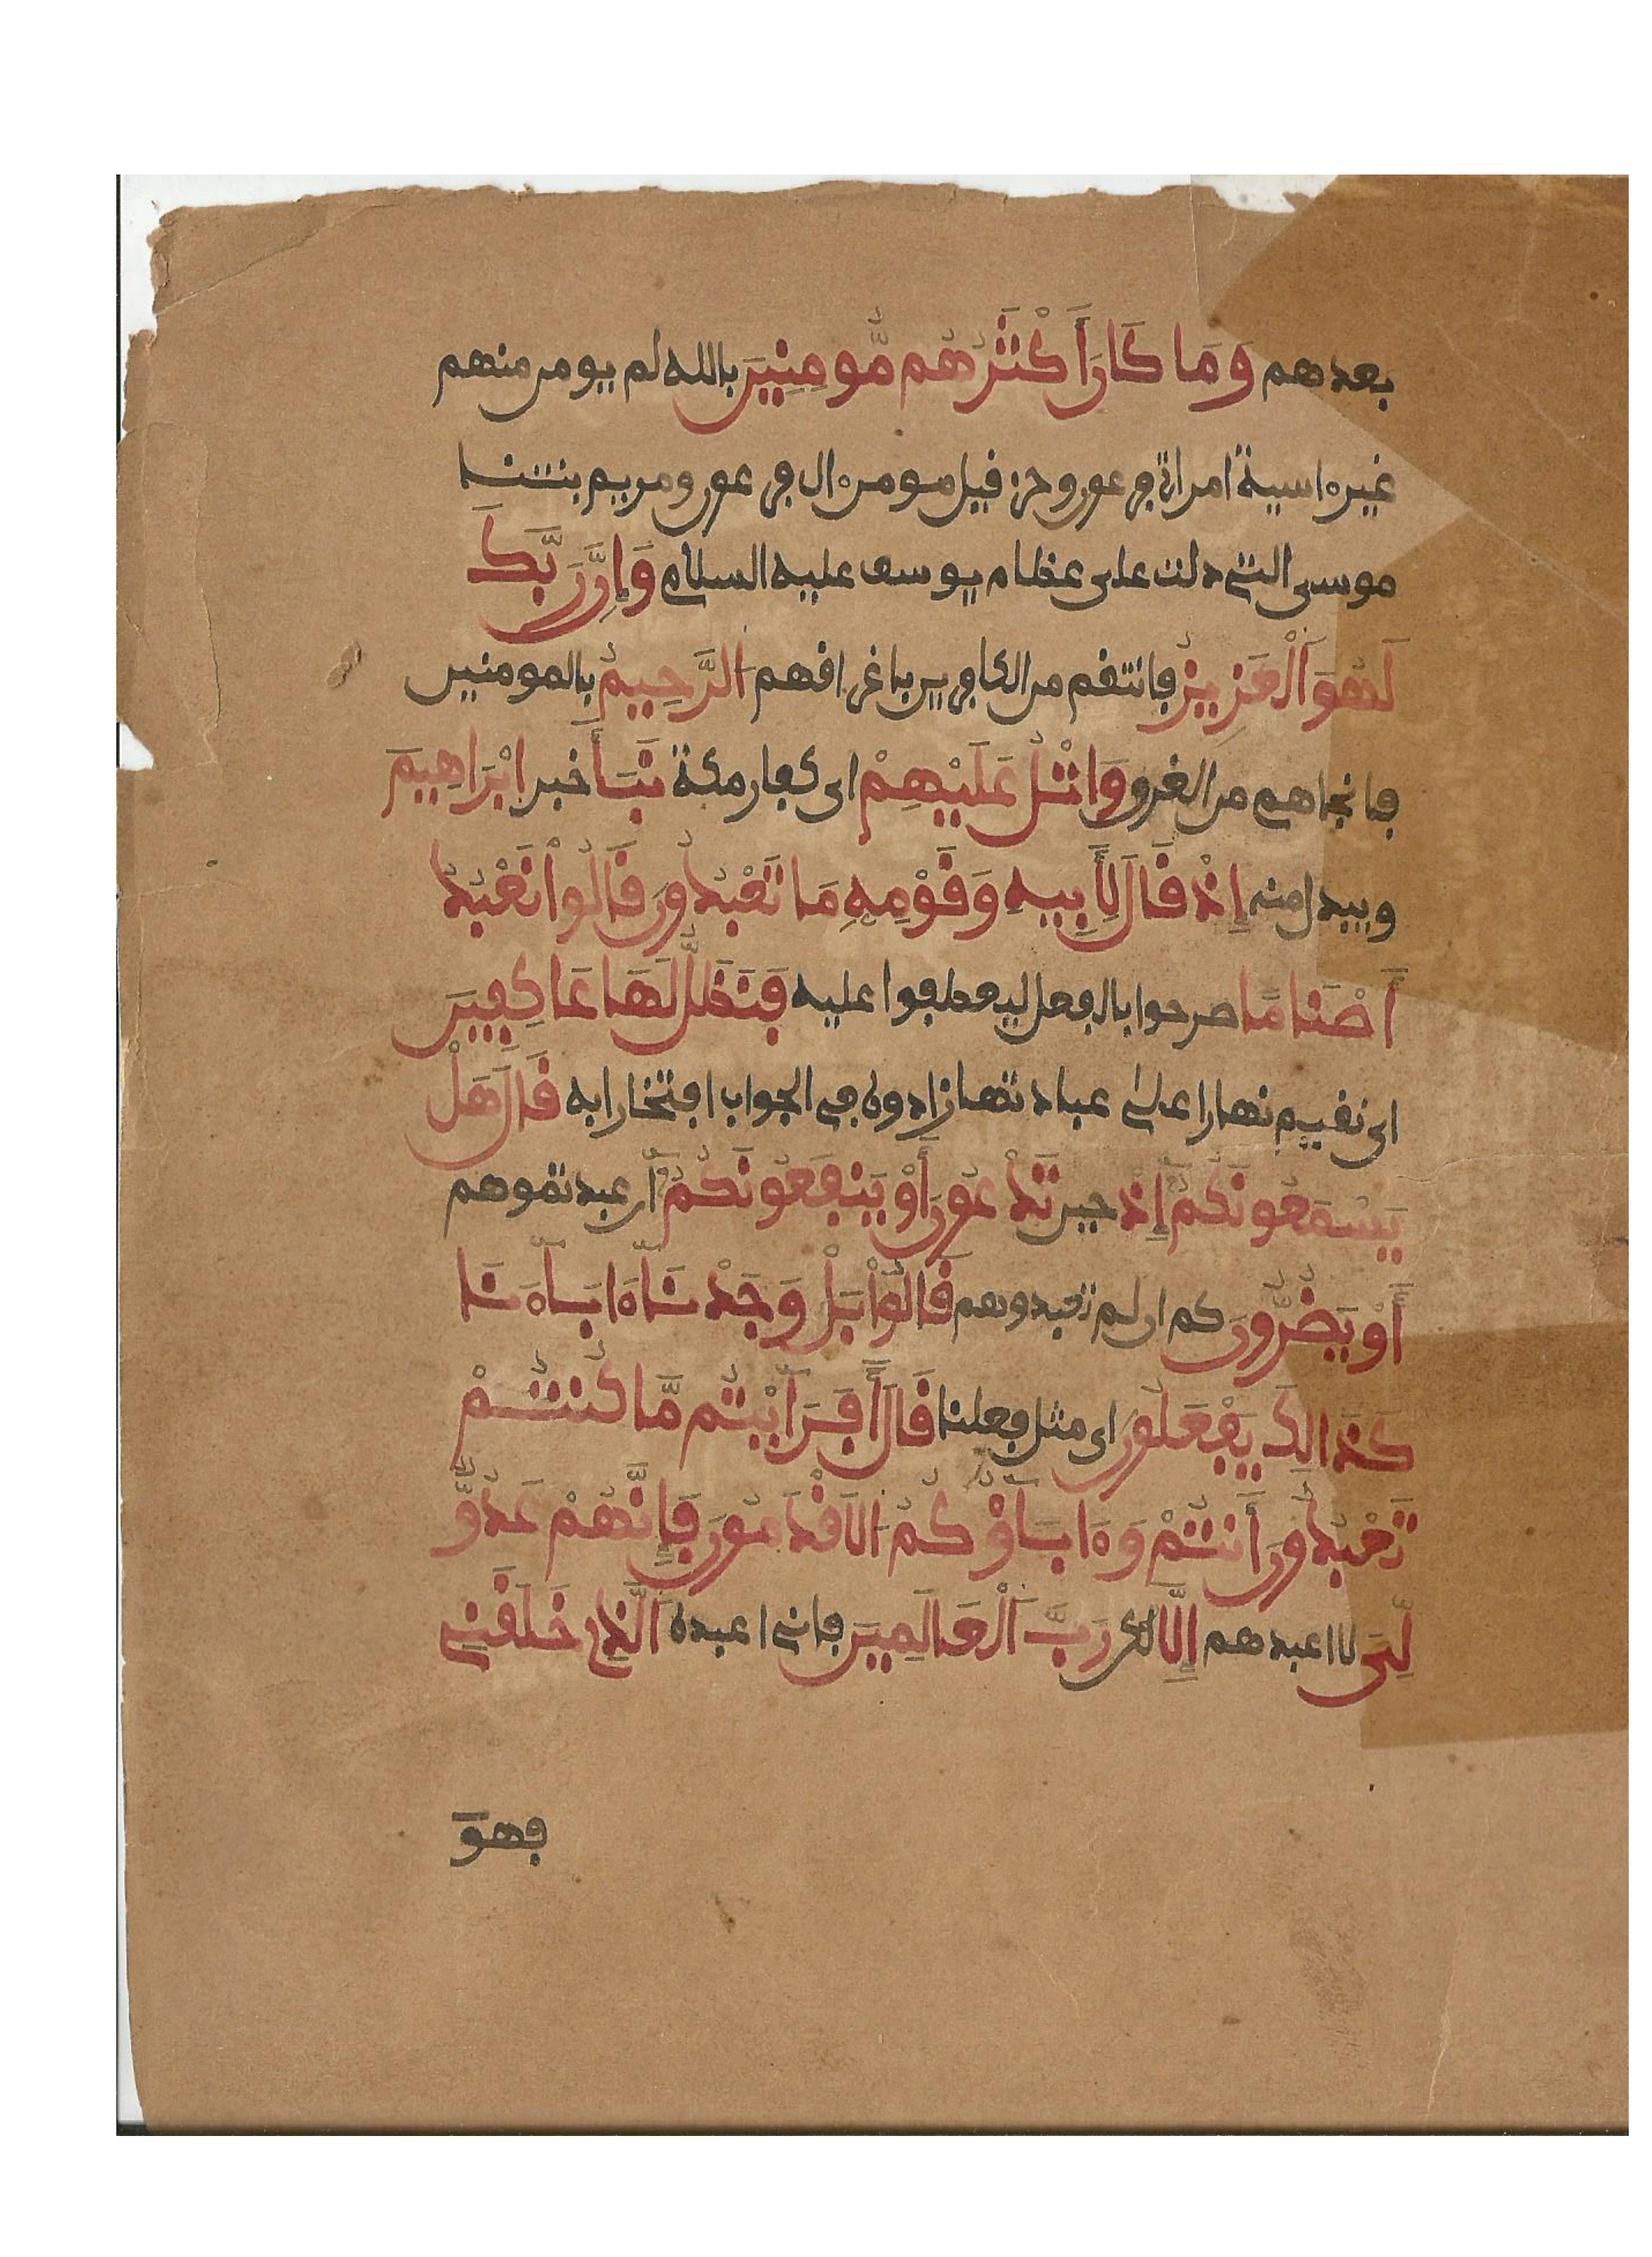 بعدهم وَمَا كَانَ أَكْثَرُهُم مُّومِنِينَ بالله لم يومن منهم
غيره اسية امراة فرعون وحزقيل مومن ال فرعون ومريم بنت نا
موسى التي دلت على عظام يوسف عليه السلام وَإِنَّ رَبَّكَ
لَهُوَ اَلْعَزِيزُ فانتقم من الكافرين باغراقهم اَلرَّحِيمُ بالمومنين
فانجاهم من الغرو وَاتْلُ عَلَيْهِمْ اى كفار مكة نَبَأَ خبر إِبْرَاهِيمَ
ويبدل منه إِذْ قَالَ لِأَبِيهِ وَقَوْمِهِ مَا تَعْبُدُونَ قَالُواْ نَعْبُدُ
أَصْنَامًا صرحوا بالفعل ليعطفوا عليه فَنَظَلُّ لَهَا عَاكِفِينَ
اى نقيم نهارا على عبادتها زادوه في الجواب افتخارا به قَالَ هَلْ
يَسْمَعُونَكُمْ إِذْ حين تَدْعُونَ أَوْ يَنفَعُونَكُمْ ان عبدتموهم
أَوْ يَضُرُّونَ كم ان لم تعبدوهم قَالُواْ بَلْ وَجَدْنَا ءَابَاءَنَا
كَذَالِكَ يَفْعَلُونَ اى مثل فعلنا قَالَ أَفَرَأَيْتُم مَّا كُنتُمْ
تَعْبُدُونَ أَنتُمْ وَءَابَاؤُكُمُ اَلَاقْدَمُونَ فَإِنَّهُمْ عَدُوٌّ
لِّىَ لا اعبدهم إِلَّا لكن رَبَّ اَلْعَالَمِينَ فانى اعبده اَلَّذِى خَلَقَنِى
فهو